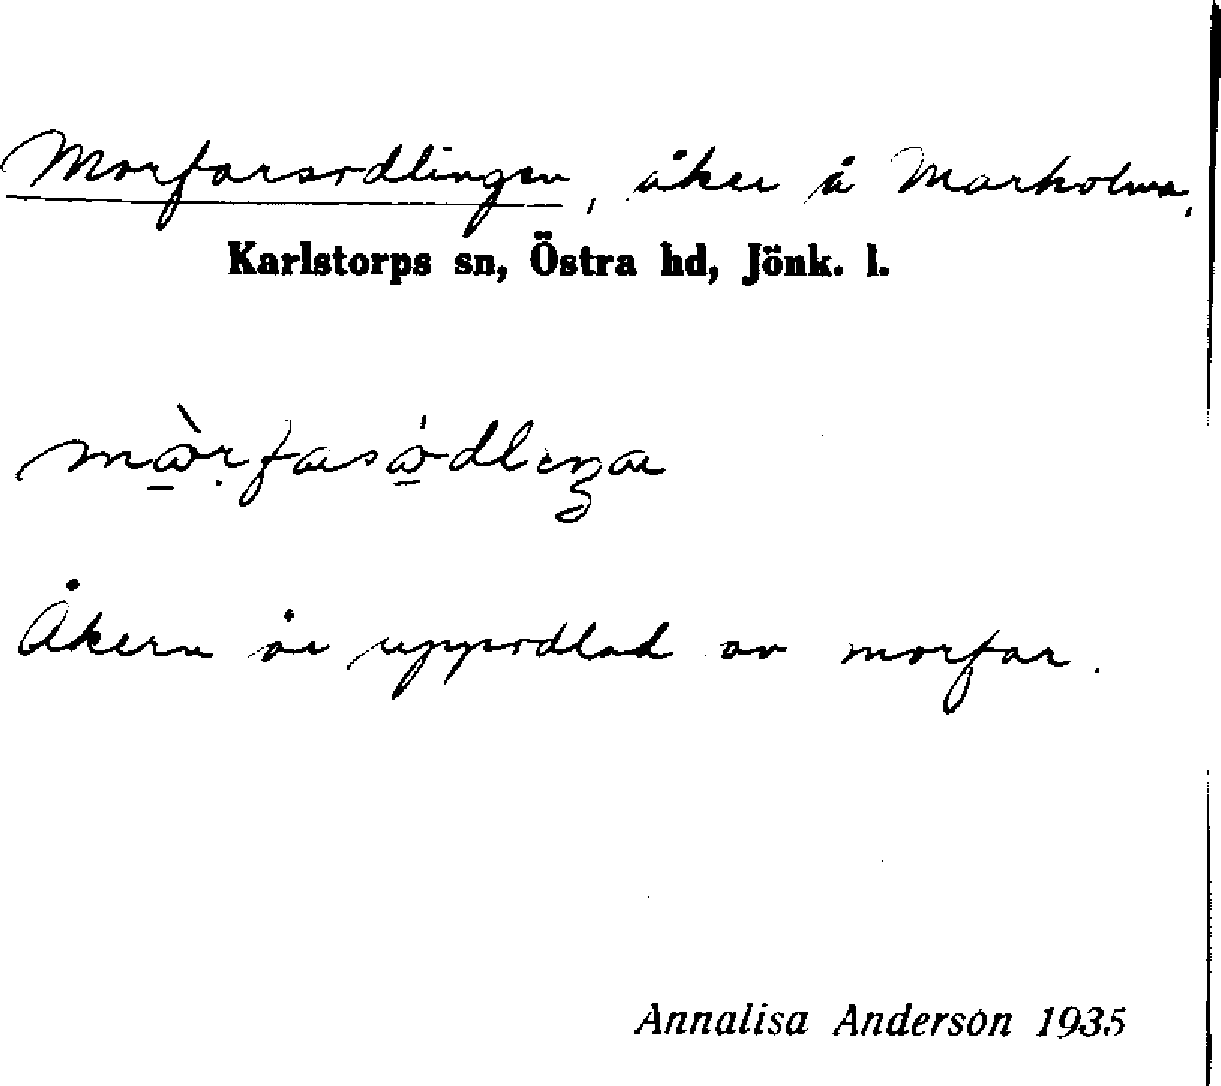 Morfarsodlingen, åker å Markolma,
Karlstorps sn, Östra hd, Jönk. l.
Åkern är uppodlad av morfar.
Annalisa Anderson 1935